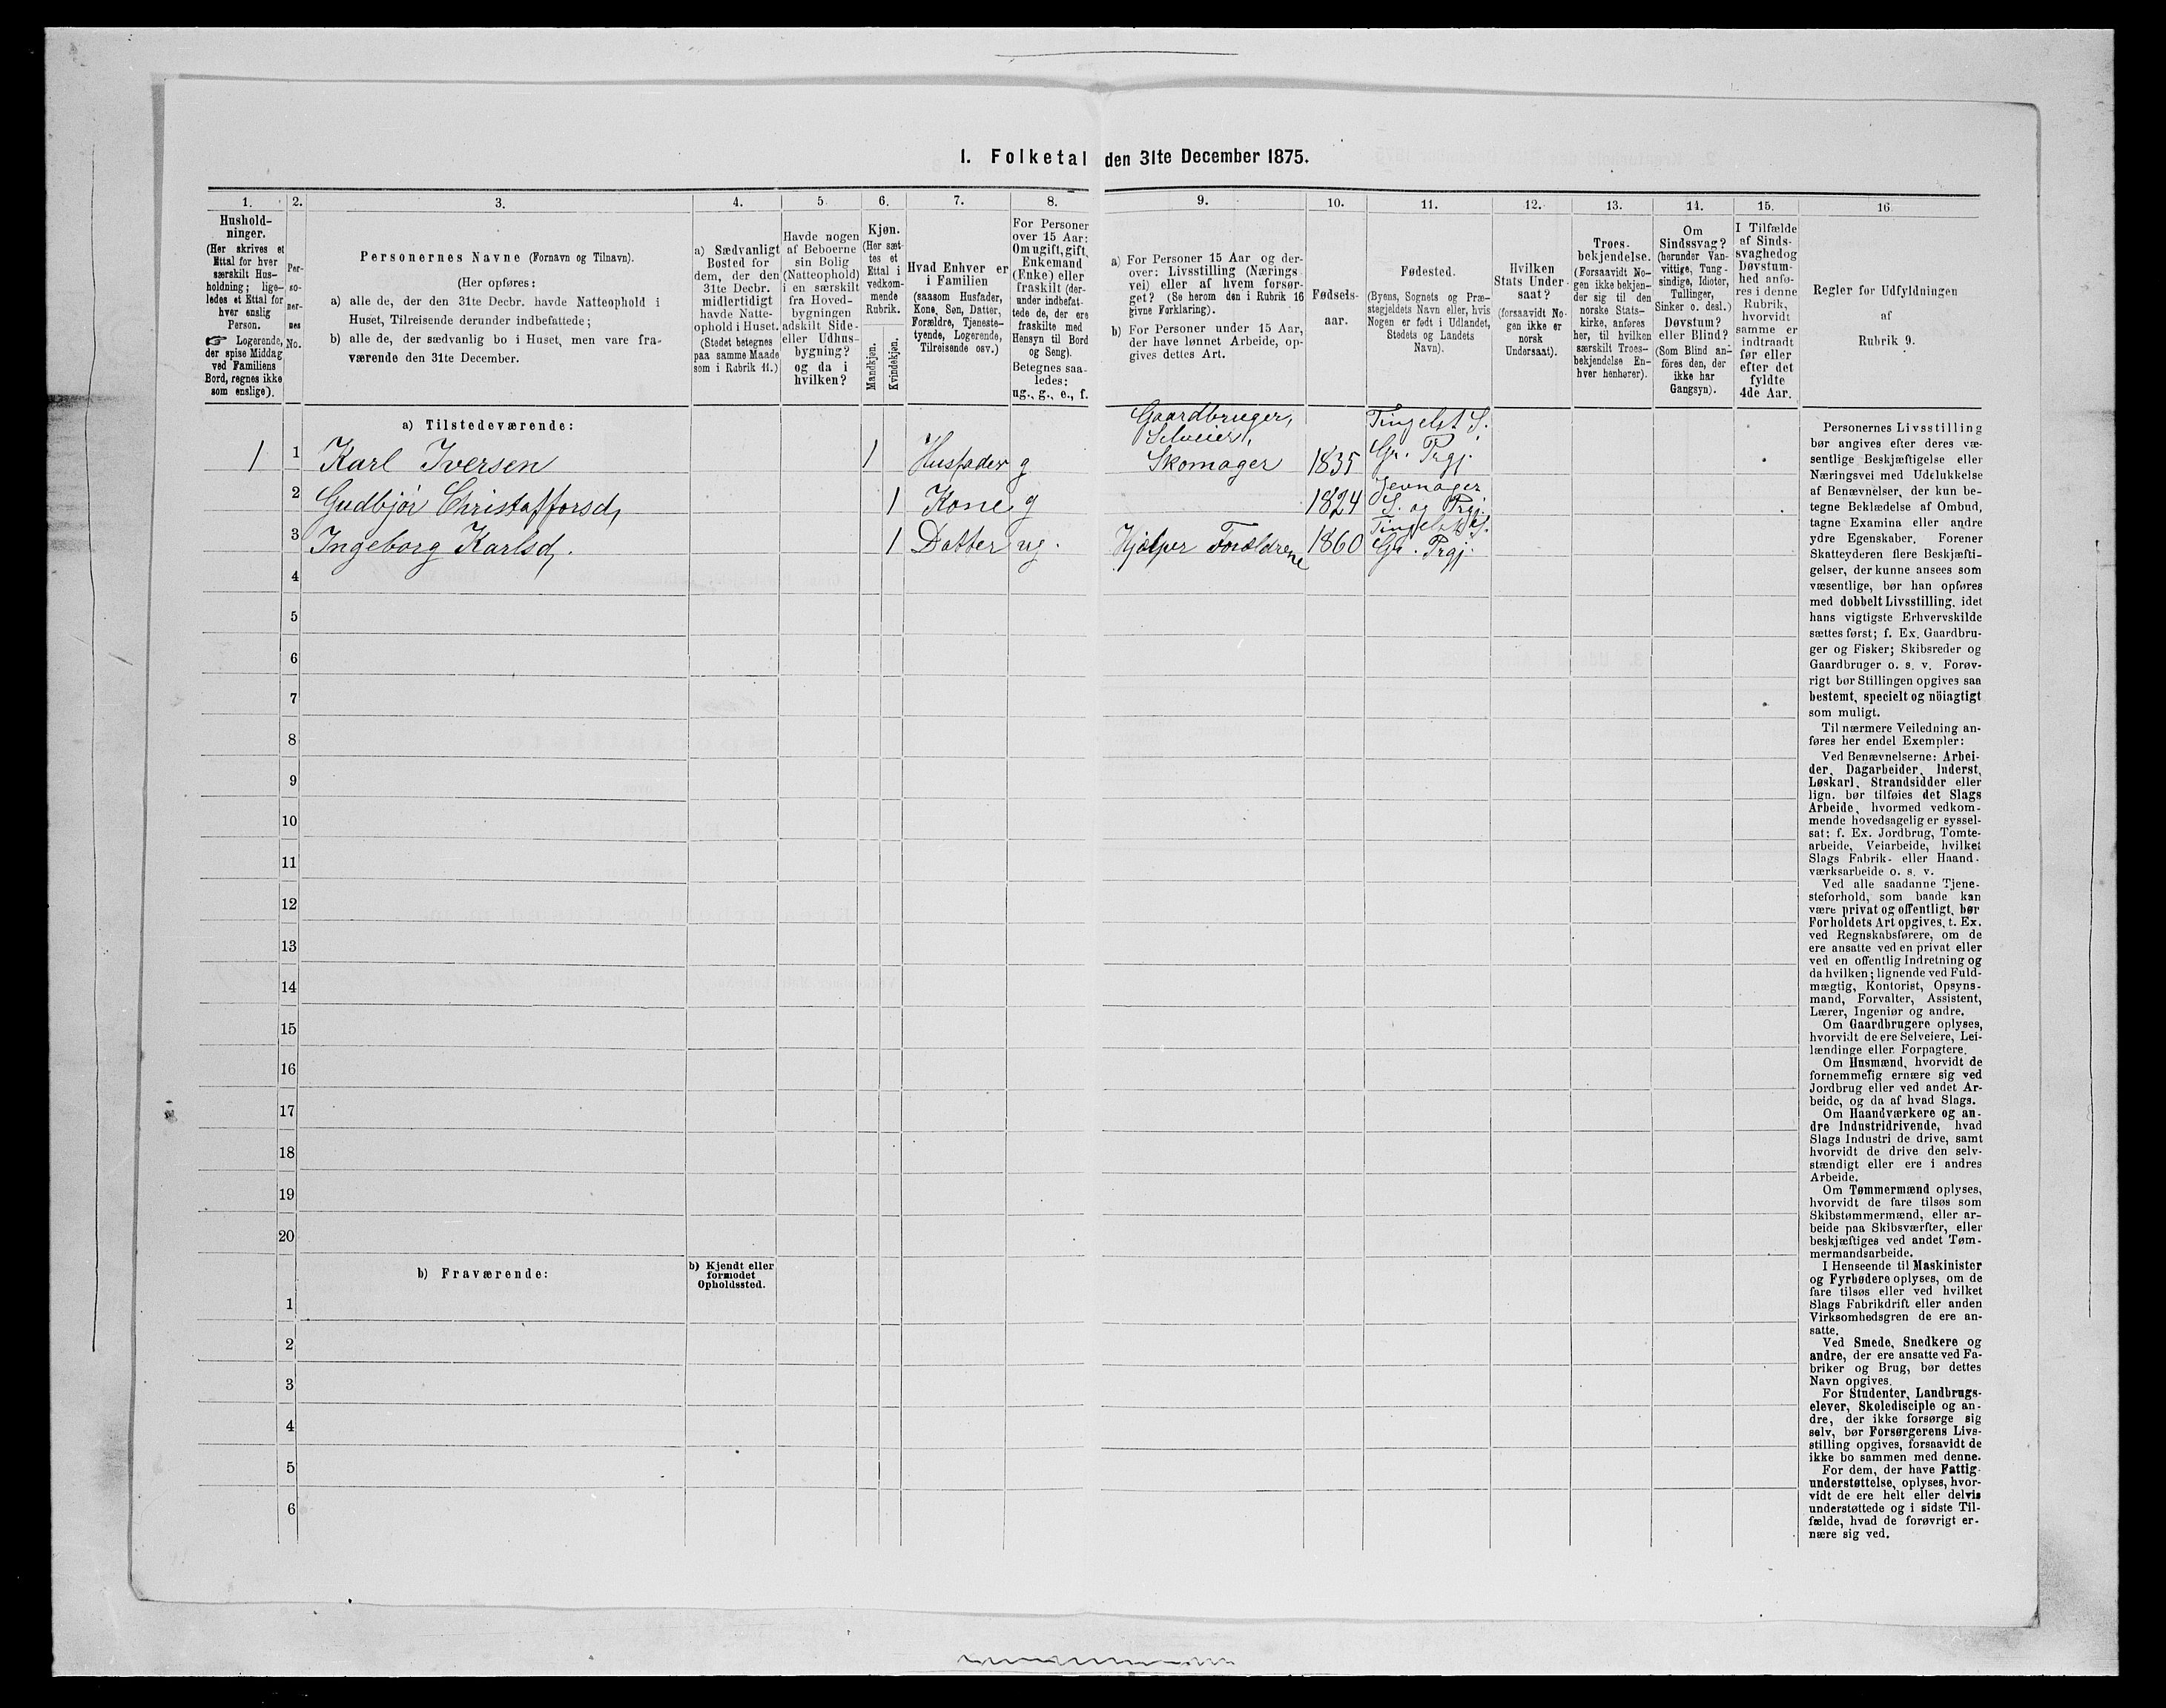 I. Folketal den 31te December 1875.
1.
Hushold-
ninger.
(Her skrives et
Ettal for hver
særskilt Hus-
holdning; lige-
ledes et Ettal for
hver enslig
Person.
☞ Logerende,
der spise Middag
ved Familiens
Bord, regnes ikke
som enslige).
2.
Per-
so-
ner-
nes
No.
3.
Personernes Navne (Fornavn og Tilnavn).
(Her opføres:
a) alle de, der den 31te Decbr. havde Natteophold i
Huset, Tilreisende derunder indbefattede;
b) alle de, der sædvanlig bo i Huset, men vare fra-
værende den 31te December.
4.
a) Sædvanligt
Bosted for
dem, der den
31te Decbr.
midlertidigt
havde Natte-
ophold i Huset.
(Stedet betegnes
paa samme Maade
som i Rubrik 11.)
5.
Havde nogen
af Beboerne
sin Bolig
(Natteophold)
i en særskilt
fra Hoved-
bygningen
adskilt Side-
eller Udhus-
bygning?
og da i
hvilken?
6.
Kjøn.
(Her sæt-
tes et
Ettal i
vedkom-
mende
Rubrik.
Mandkjøn.
Kvindekjøn.
7.
Hvad Enhver er
i Familien
(saasom Husfader,
Kone, Søn, Datter,
Forældre, Tjeneste-
tyende, Logerende,
Tilreisende osv.)
8.
For Personer
over 15 Aar:
Om ugift, gift,
Enkemand
(Enke) eller
fraskilt (der-
under indbefat-
tede de, der ere
fraskilte med
Hensyn til Bord
og Seng).
Betegnes saa-
ledes:
ug., g., e., f.
9.
a) For Personer 15 Aar og der-
over: Livsstilling (Nærings
vei) eller af hvem forsør-
get? (Se herom den i Rubrik 16
givne Forklaring).
b) For Personer under 15 Aar,
der have lønnet Arbeide, op-
gives dettes Art.
10.
Fødsels-
aar.
11.
Fødested.
(Byens, Sognets og Præ-
stegjeldets Navn eller, hvis
Nogen er født i Udlandet,
Stedets og Landets
Navn).
12.
Hvilken
Stats Under
saat?
(forsaavidt No-
gen ikke er
norsk
Undersaat).
13.
Troes-
bekjendelse.
(Forsaavidt No-
gen ikke bekjen-
der sig til den
norske Stats-
kirke, anføres
her, til hvilken
særskilt Troes-
bekjendelse En-
hver henhører).
14.
Om
Sindssvag?
(herunder Van-
vittige, Tung-
sindige, Idioter,
Tullinger,
Sinker o. desl.)
Døvstum?
eller Blind?
(Som Blind an-
føres den, der
ikke har
Gangsyn).
15.
I Tilfælde
af Sinds-
svaghed og
Døvstum-
hed anfø-
res i denne
Rubrik,
hvorvidt
samme er
indtraadt
før eller
efter det
fyldte
4de Aar.
16
Regler for Udfyldningen
af
Rubrik 9.
a) Tilstedeværende:
1 1 Karl Iversen 1 Husfader g Gaardbruger, Selveier, Skomager 1835 Tingelst. S. Gr. Prgj.
2 Gudbjør Christoffersd, 1 Kone g 1824 Jevnager S. og Prgj.
3 Ingeborg Karlsd, 1 Datter ug. Hjælper Forældrene 1860 Tingelst. S. Gr. Prgj.
4
5
6
7
8
9
10
11
12
13
14
15
16
17
18
19
20
b) Fraværende:
b) Kjendt eller
formodet
Opholdssted.
1
2
3
4
5
6
Personernes Livsstilling
bør angives efter deres væ-
sentlige Beskjæftigelse eller
Næringsvei med Udelukkelse
af Benævnelser, der kun be-
tegne Beklædelse af Ombud,
tagne Examina eller andre
ydre Egenskaber. Forener
Skatteyderen flere Beskjæfti-
gelser, der kunne ansees som
væsentlige, bør han opføres
med dobbelt Livsstilling, idet
hans vigtigste Erhvervskilde
sættes først; f. Ex. Gaardbru-
ger og Fisker; Skibsreder og
Gaardbruger o. s. v. Forøv-
rigt bør Stillingen opgives saa
bestemt, specielt og nöiagtigt
som muligt.
Til nærmere Veiledning an-
føres her endel Exempler:
Ved Benævnelserne: Arbei-
der, Dagarbeider, Inderst,
Løskarl, Strandsidder eller
lign. bør tilføies det Slags
Arbeide, hvormed vedkom-
mende hovedsagelig er syssel-
sat; f. Ex. Jordbrug, Tomte-
arbeide, Veiarbeide, hvilket
Slags Fabrik- eller Haand-
værksarbeide o. s. v.
Ved alle saadanne Tjene-
steforhold, som baade kan
være privat og offentligt, bør
Forholdets Art opgives, t. Ex.
ved Regnskabsførere, om de
ere ansatte ved en privat eller
ved en offentlig Indretning og
da hvilken; lignende ved Fuld-
mægtig, Kontorist, Opsyns-
mand, Forvalter, Assistent,
Lærer, Ingeniør og andre.
Om Gaardbrugere oplyses,
hvorvidt de ere Selveiere, Lei-
lændinge eller Forpagtere.
Om Husmænd, hvorvidt de
fornemmelig ernære sig ved
Jordbrug eller ved andet Ar-
beide, og da af hvad Slags.
Om Haandværkere og an-
dre Industridrivende, hvad
Slags Industri de drive, samt
hvorvidt de drive den selv-
stændigt eller ere i andres
Arbeide.
Om Tømmermænd oplyses,
hvorvidt de fare tilsøs som
Skibstømmermænd, eller ar-
beide paa Skibsværfter, eller
beskjæftiges ved andet Tøm-
mermandsarbeide.
I Henseende til Maskinister
og Fyrbødere oplyses, om de
fare tilsøs eller ved hvilket
Slags Fabrikdrift eller anden
Virksomhedsgren de ere an-
satte.
Ved Smede, Snedkere og
andre, der ere ansatte ved Fa-
briker og Brug, bør dettes
Navn opgives.
For Studenter, Landbrugs-
elever, Skoledisciple og an-
dre, der ikke forsørge sig
selv, bør Forsørgerens Livs-
stilling opgives, forsaavidt de
ikke bo sammen med denne.
For dem, der have Fattig-
understøttelse, oplyses, hvor-
vidt de ere helt eller delvis
understøttede og i sidste Til-
fælde, hvad de forøvrigt er-
nære sig ved.